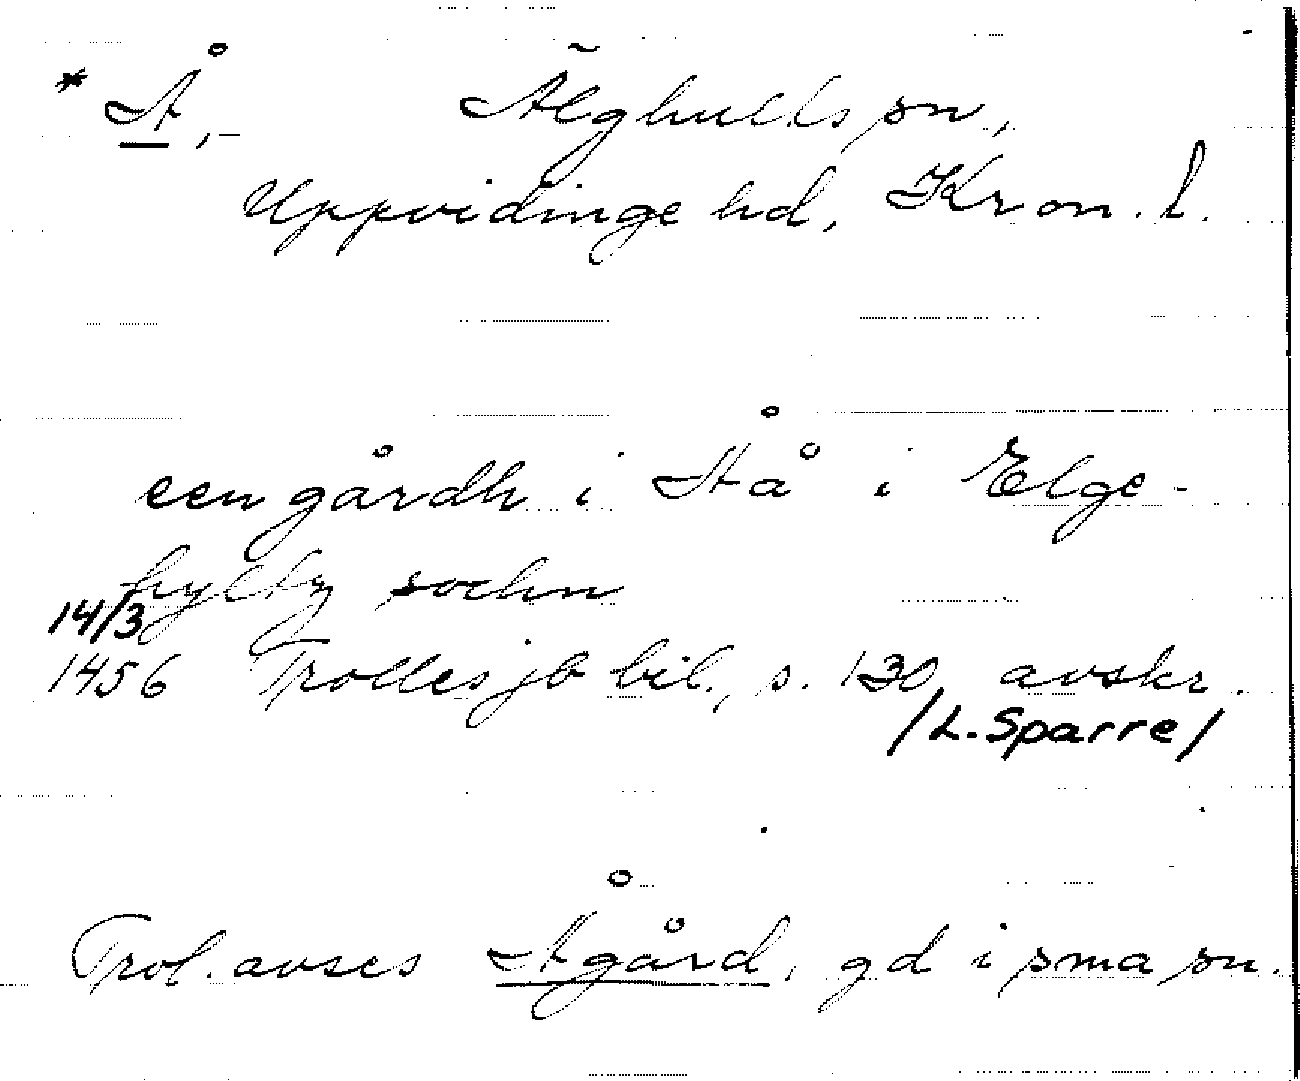 * Å,- Älghults sn,
Uppvidinge hd, Kron. l.
een gårdh i Åå i Elge-
hyltz sochn
14/3
1456 Trollesjb bil., s. 130, avskr.
/L. Sparre/
Trol. avses Ågård, gd i sma sn.